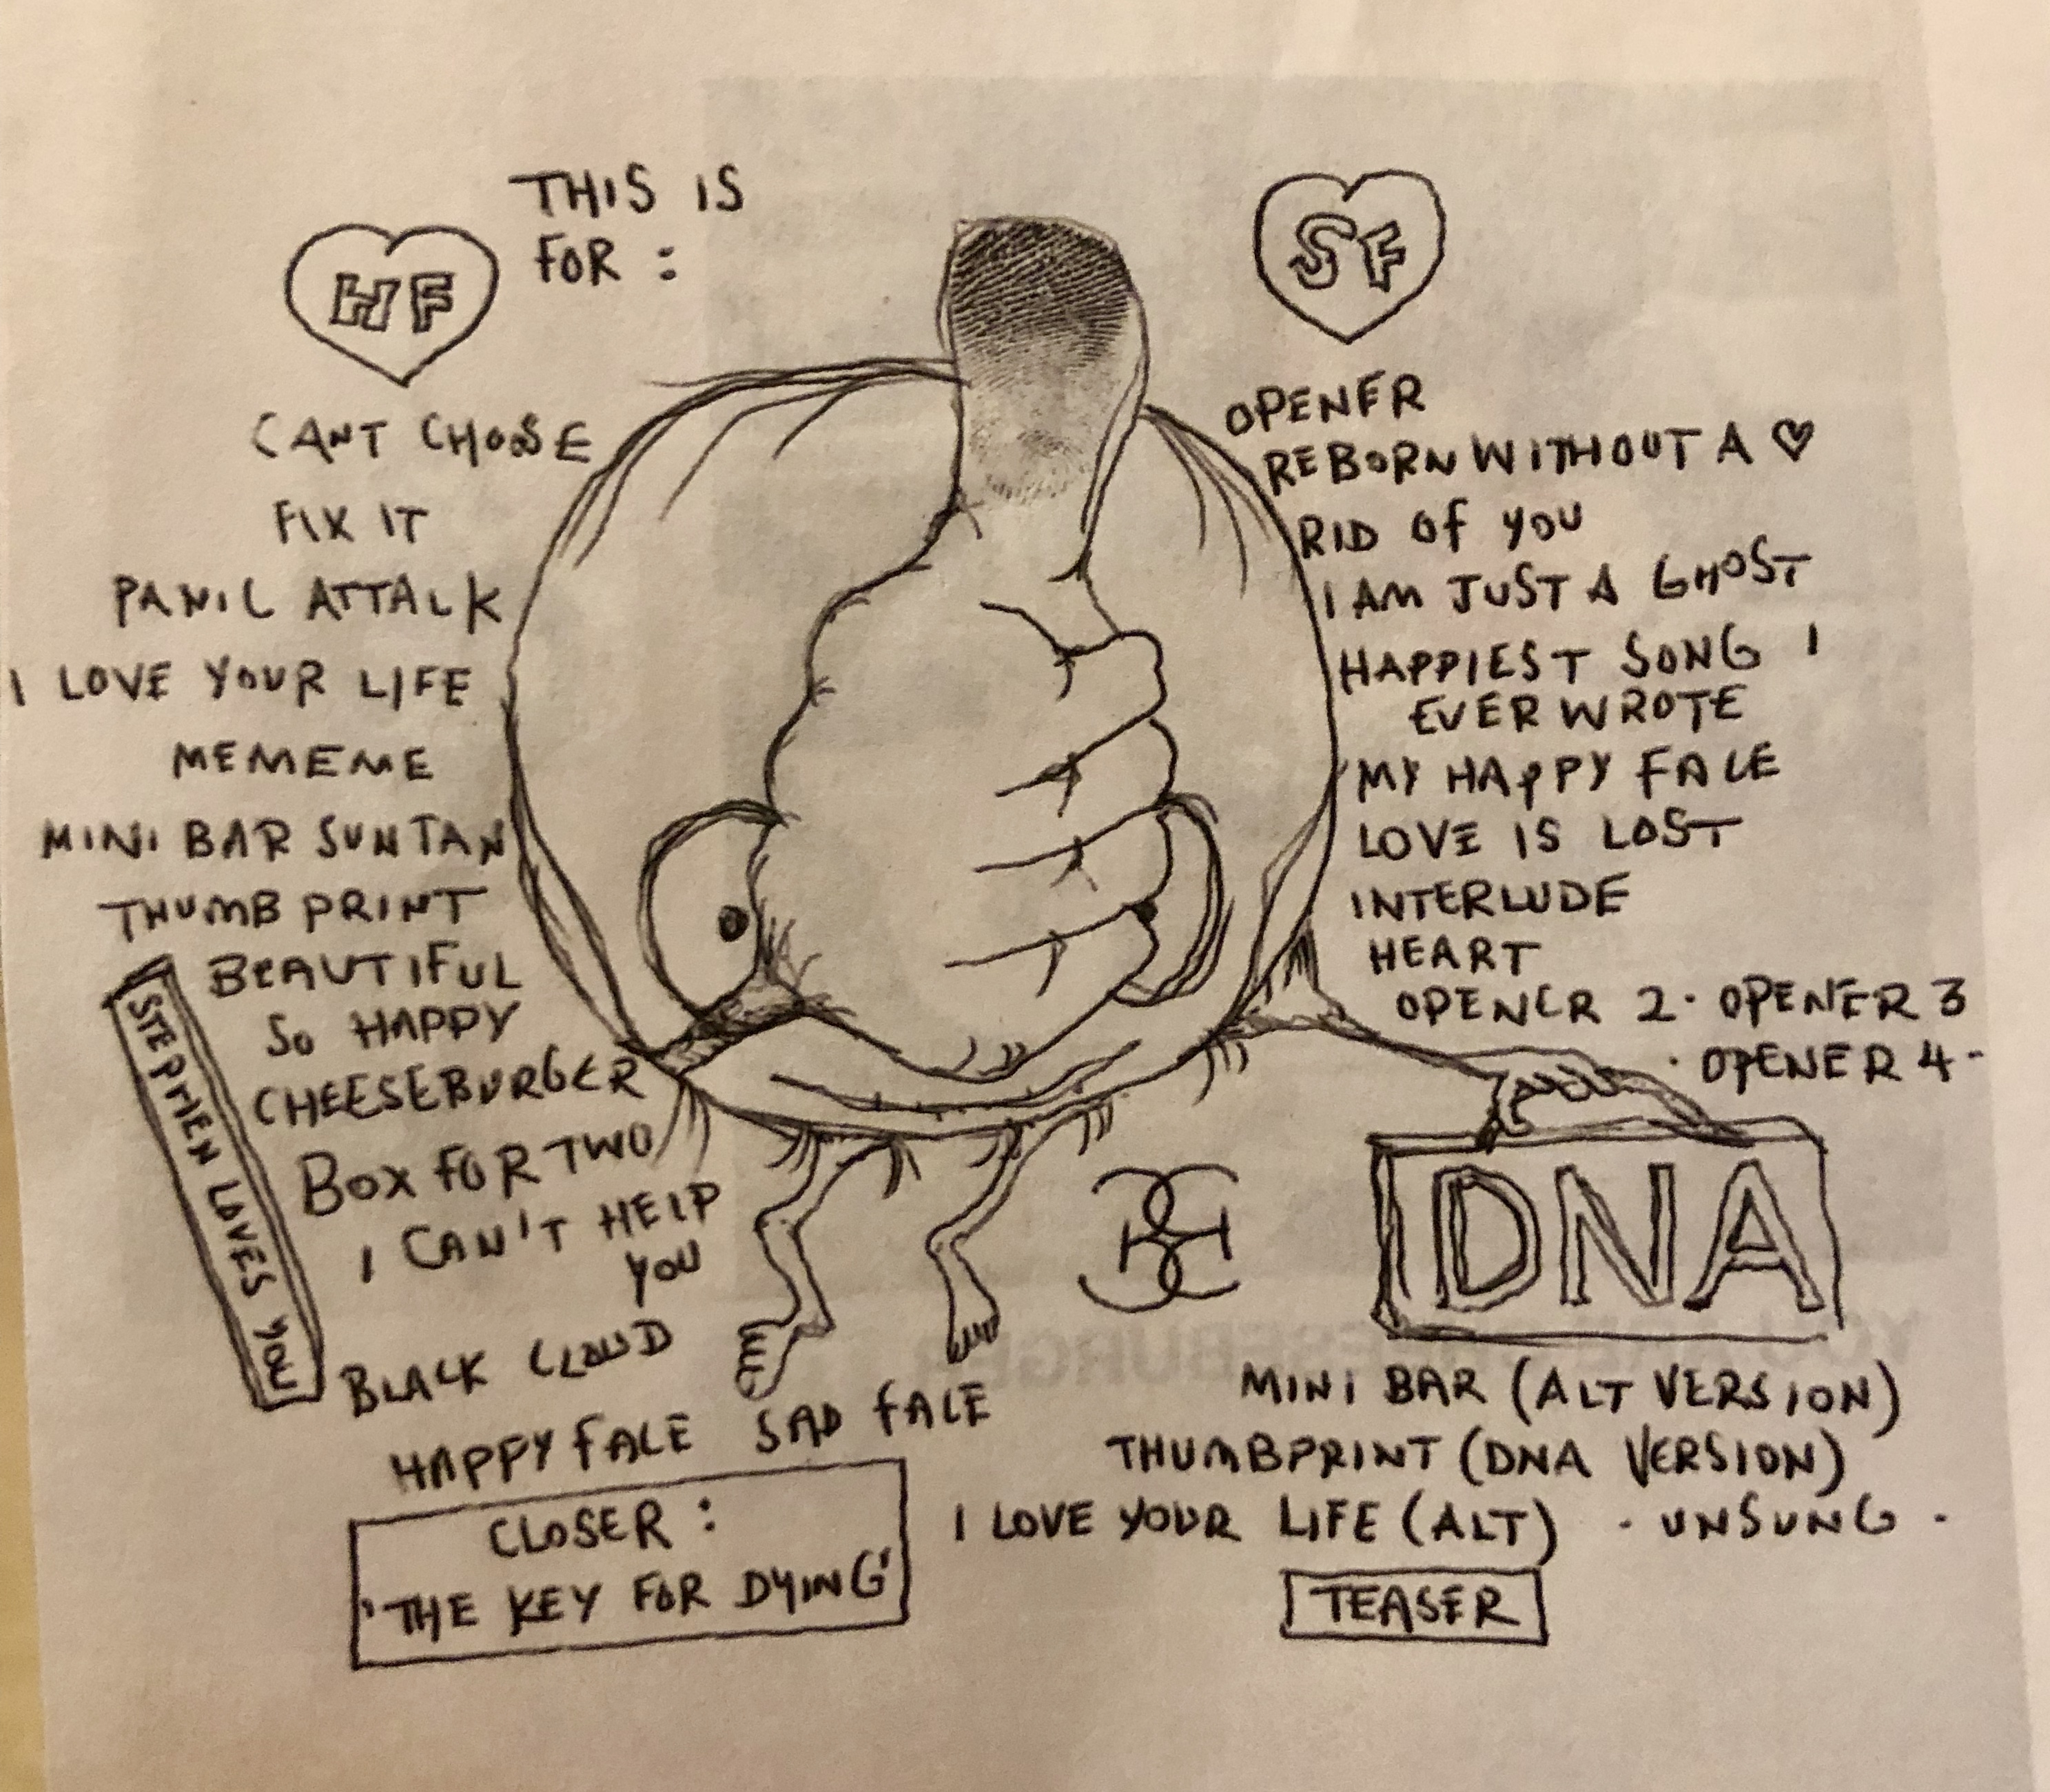 THIS IS
FOR :
HF
CANT CHOOSE
FIX IT
PANIC ATTACK
I LOVE YOUR LIFE
MEMEME
MINI BAR SUNTAN
THUMBPRINT
BEAUTIFUL
SO HAPPY
CHEESEBURGER
BOX FOR TWO
I CAN'T HELP
YOU
BLACK CLOUD
HAPPY FACE SAD FACE
STEPHEN LOVES YOU
CLOSER :
'THE KEY FOR DYING'
SF
OPENER
REBORN WITHOUT A ♡
RID OF YOU
I AM JUST A GHOST
HAPPIEST SONG I
EVER WROTE
MY HAPPY FACE
LOVE IS LOST
INTERLUDE
HEART
OPENER 2 · OPENER 3
· OPENER 4 -
DNA
MINI BAR (ALT VERSION)
THUMBPRINT (DNA VERSION)
I LOVE YOUR LIFE (ALT) · UNSUNG ·
TEASER